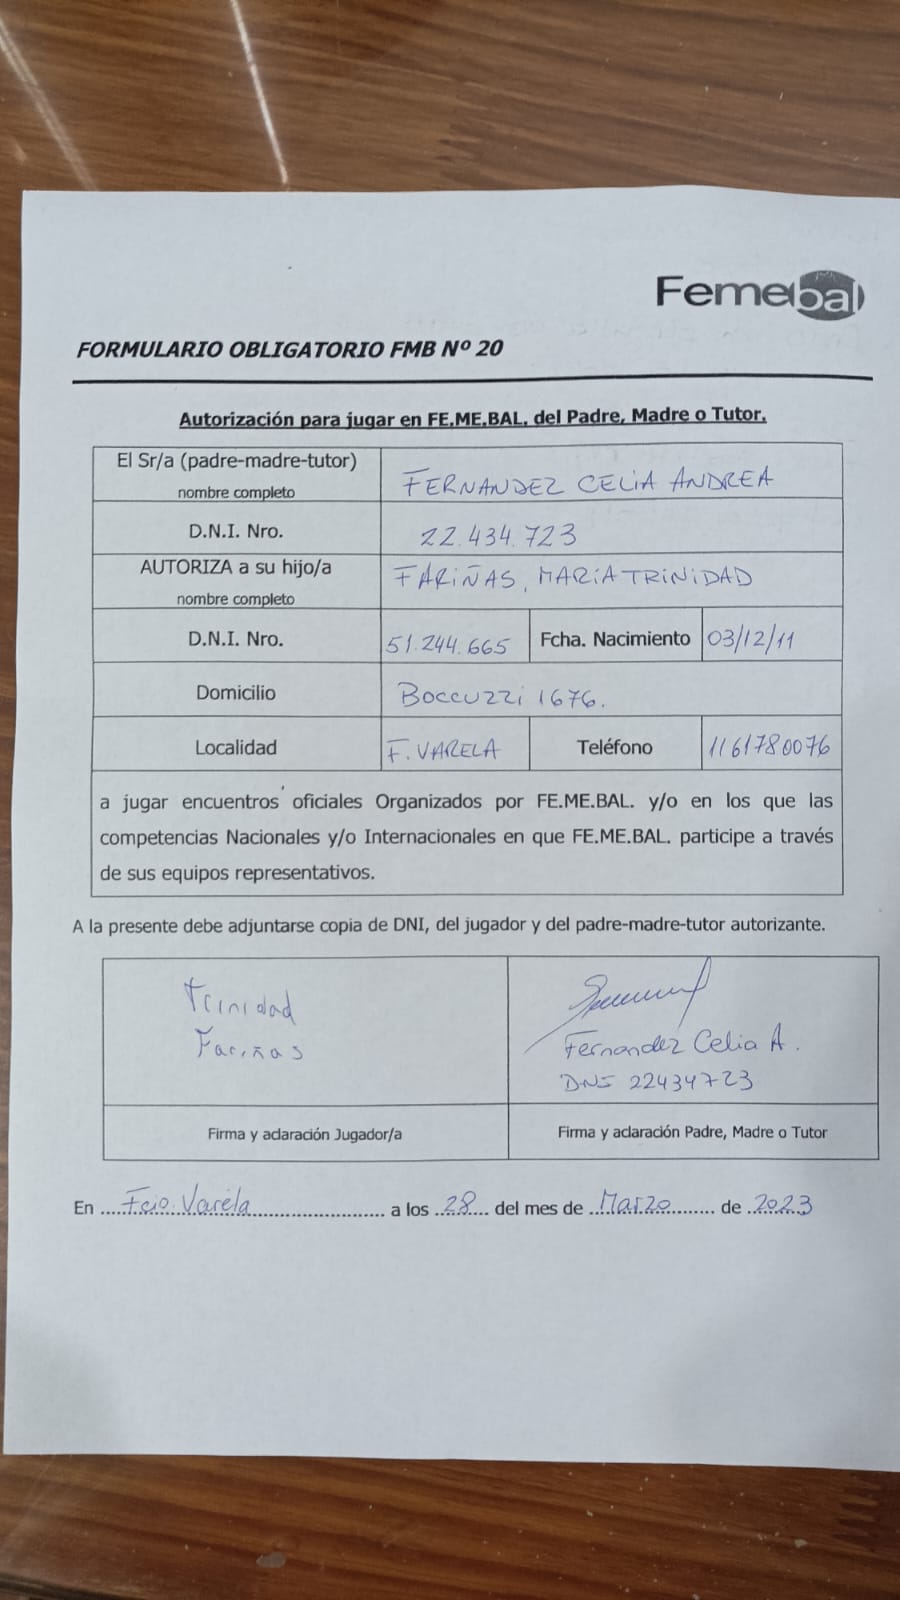 Femebal
FORMULARIO OBLIGATORIO FMB Nº 20
Autorización para jugar en FE.ME.BAL. del Padre, Madre o Tutor.
El Sr/a (padre-madre-tutor)
nombre completo
FERNANDEZ CELIA ANDREA
D.N.I. Nro.
22.434.723
AUTORIZA a su hijo/a
nombre completo
FARIÑAS, MARIA TRINIDAD
D.N.I. Nro.
51.244.665
Fcha. Nacimiento
03/12/11
Domicilio
Boccuzzi 1676.
Localidad
F. VARELA
Teléfono
1161780076
a jugar encuentros oficiales Organizados por FE.ME.BAL. y/o en los que las
competencias Nacionales y/o Internacionales en que FE.ME.BAL. participe a través
de sus equipos representativos.
A la presente debe adjuntarse copia de DNI, del jugador y del padre-madre-tutor autorizante.
Trinidad
Fariñas
Fernandez Celia A.
DNI 22434723
Firma y aclaración Jugador/a
Firma y aclaración Padre, Madre o Tutor
En Fcio. Varela a los 28 del mes de Marzo de 2023